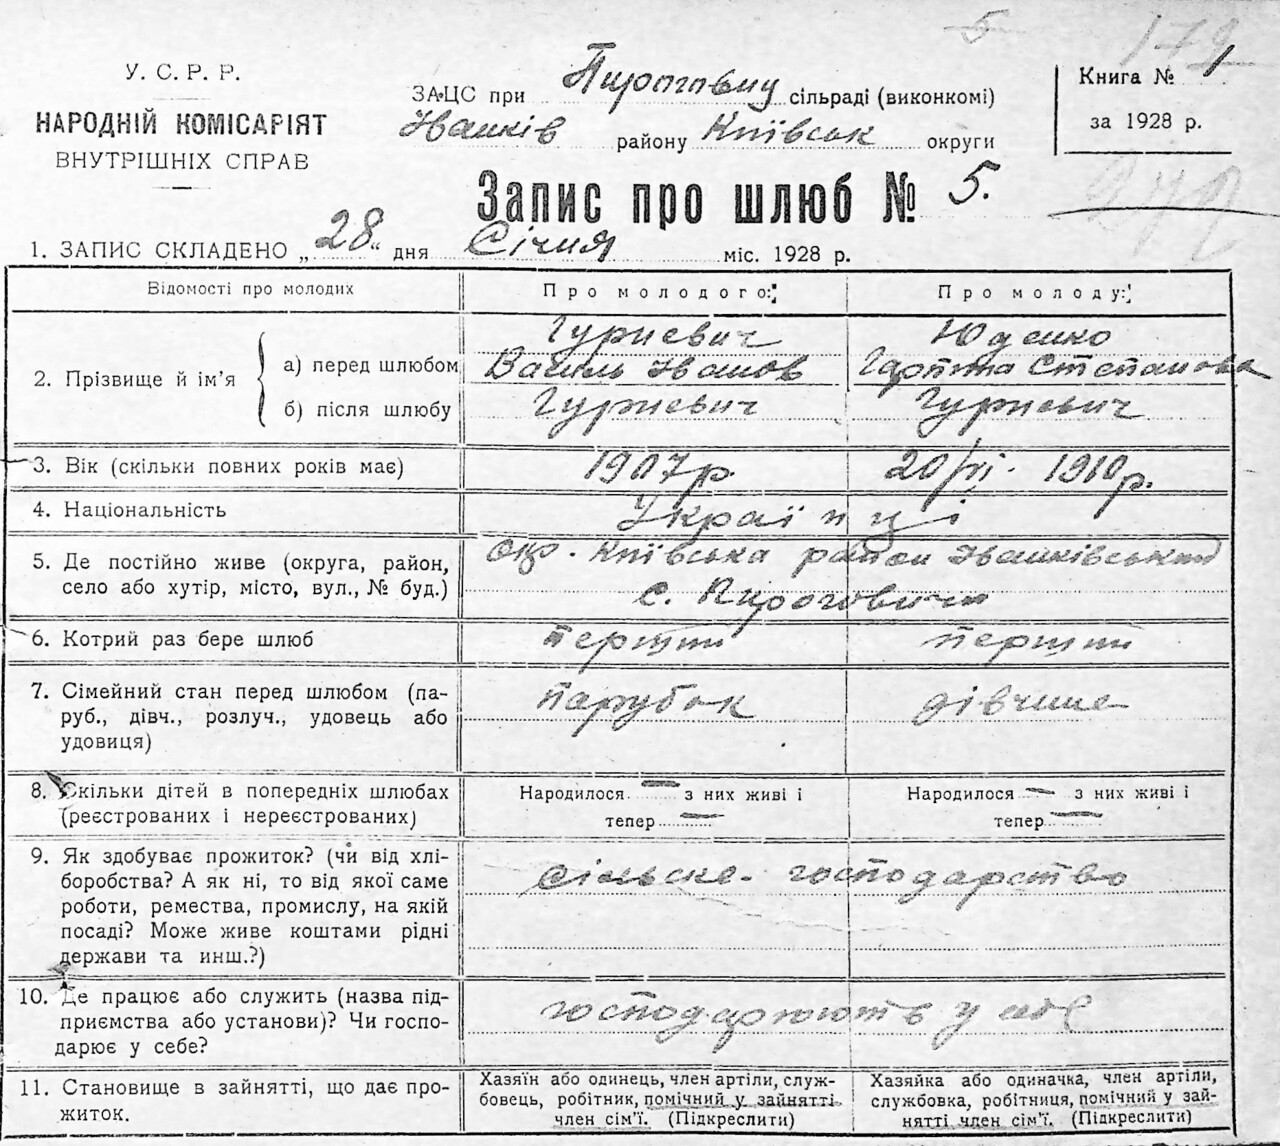 5
172
У. С. Р. Р.
НАРОДНІЙ КОМІСАРІЯТ
ВНУТРІШНІХ СПРАВ
ЗАЦС при сільраді (виконкомі)
Іванків району Київськ округи
Книга № 1
за 1928 р.
Запис про шлюб № 5.
1. ЗАПИС СКЛАДЕНО „28“ дня Січня міс. 1928 р.
Відомості про молодих
Про молодого:
Про молоду:
2. Прізвище й ім’я
а) перед шлюбом
б) після шлюбу
Гуриевич
Василь Іванов
Гуриевич
Юденко
Гарпина Степанова
Гуриевич
3. Вік (скільки повних років має)
1907 р.
20/VI. 1910 р.
4. Національність
Українці
5. Де постійно живе (округа, район,
село або хутір, місто, вул., № буд.)
окр. Київська район Іванківський
с. Пироговичи
6. Котрий раз бере шлюб
перший
перший
7. Сімейний стан перед шлюбом (па-
руб., дівч., розлуч., удовець або
удовиця)
парубок
дівчина
8. Скільки дітей в попередніх шлюбах
(реєстрованих і нереєстрованих)
Народилося — з них живі і
тепер —
Народилося — з них живі і
тепер —
9. Як здобуває прожиток? (чи від хлі-
боробства? А як ні, то від якої саме
роботи, ремества, промислу, на якій
посаді? Може живе коштами рідні
держави та инш.?)
сільске-господарство
10. Де працює або служить (назва під-
приємства або установи)? Чи госпо-
дарює у себе?
господарюють у себе
11. Становище в зайнятті, що дає про-
житок.
Хазяїн або одинець, член артіли, служ-
бовець, робітник, помічний у зайнятті
член сім’ї. (Підкреслити)
Хазяйка або одиначка, член артіли,
службовка, робітниця, помічний у зай-
нятті член сім’ї. (Підкреслити)